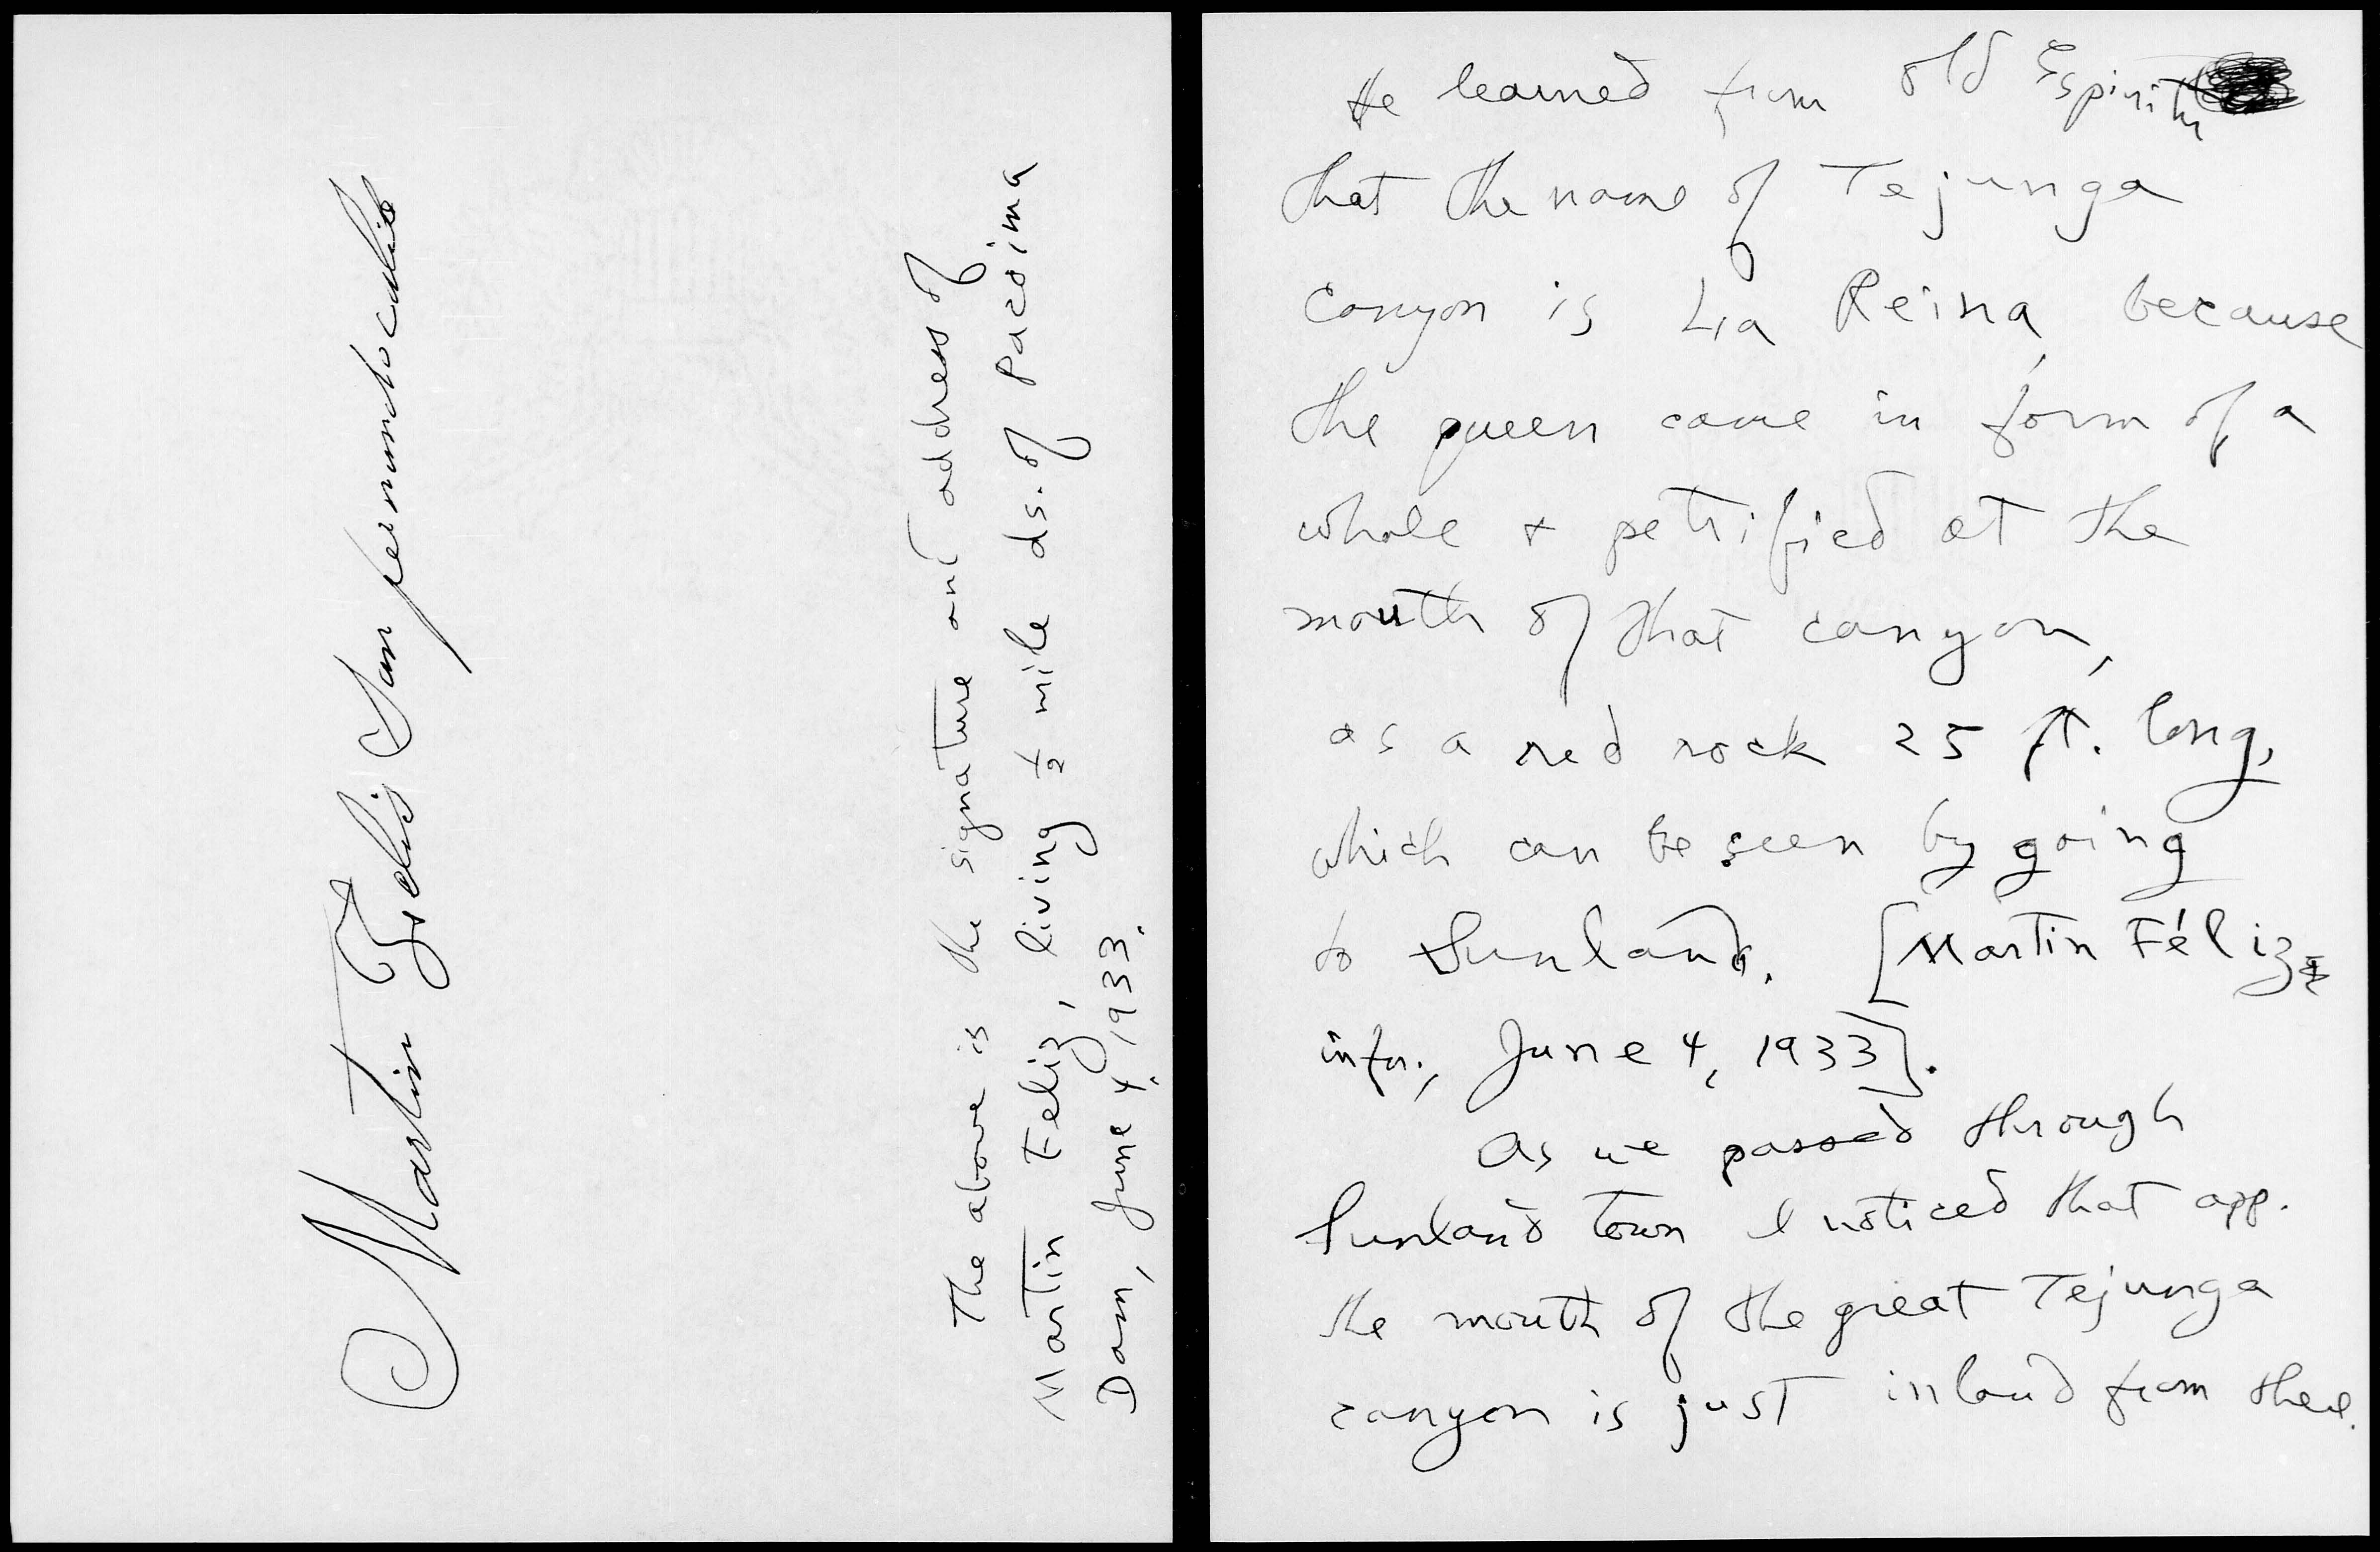 Martin Feliz San fernando calif
The above is the signature and address of
Martin Feliz, living ½ mile ds. of Pacoima
Dam, June 4, 1933.
He learned from old Espiritu
that the name of Tejunga
canyon is La Reina, because
the queen came in form of a
whale + petrified at the
mouth of that canyon,
as a red rock 25 ft. long,
which can be seen by going
to Sunland. [Martin Féliz
infor., June 4, 1933].
As we passed through
Sunland town I noticed that app.
the mouth of the great Tejunga
canyon is just inland from there.